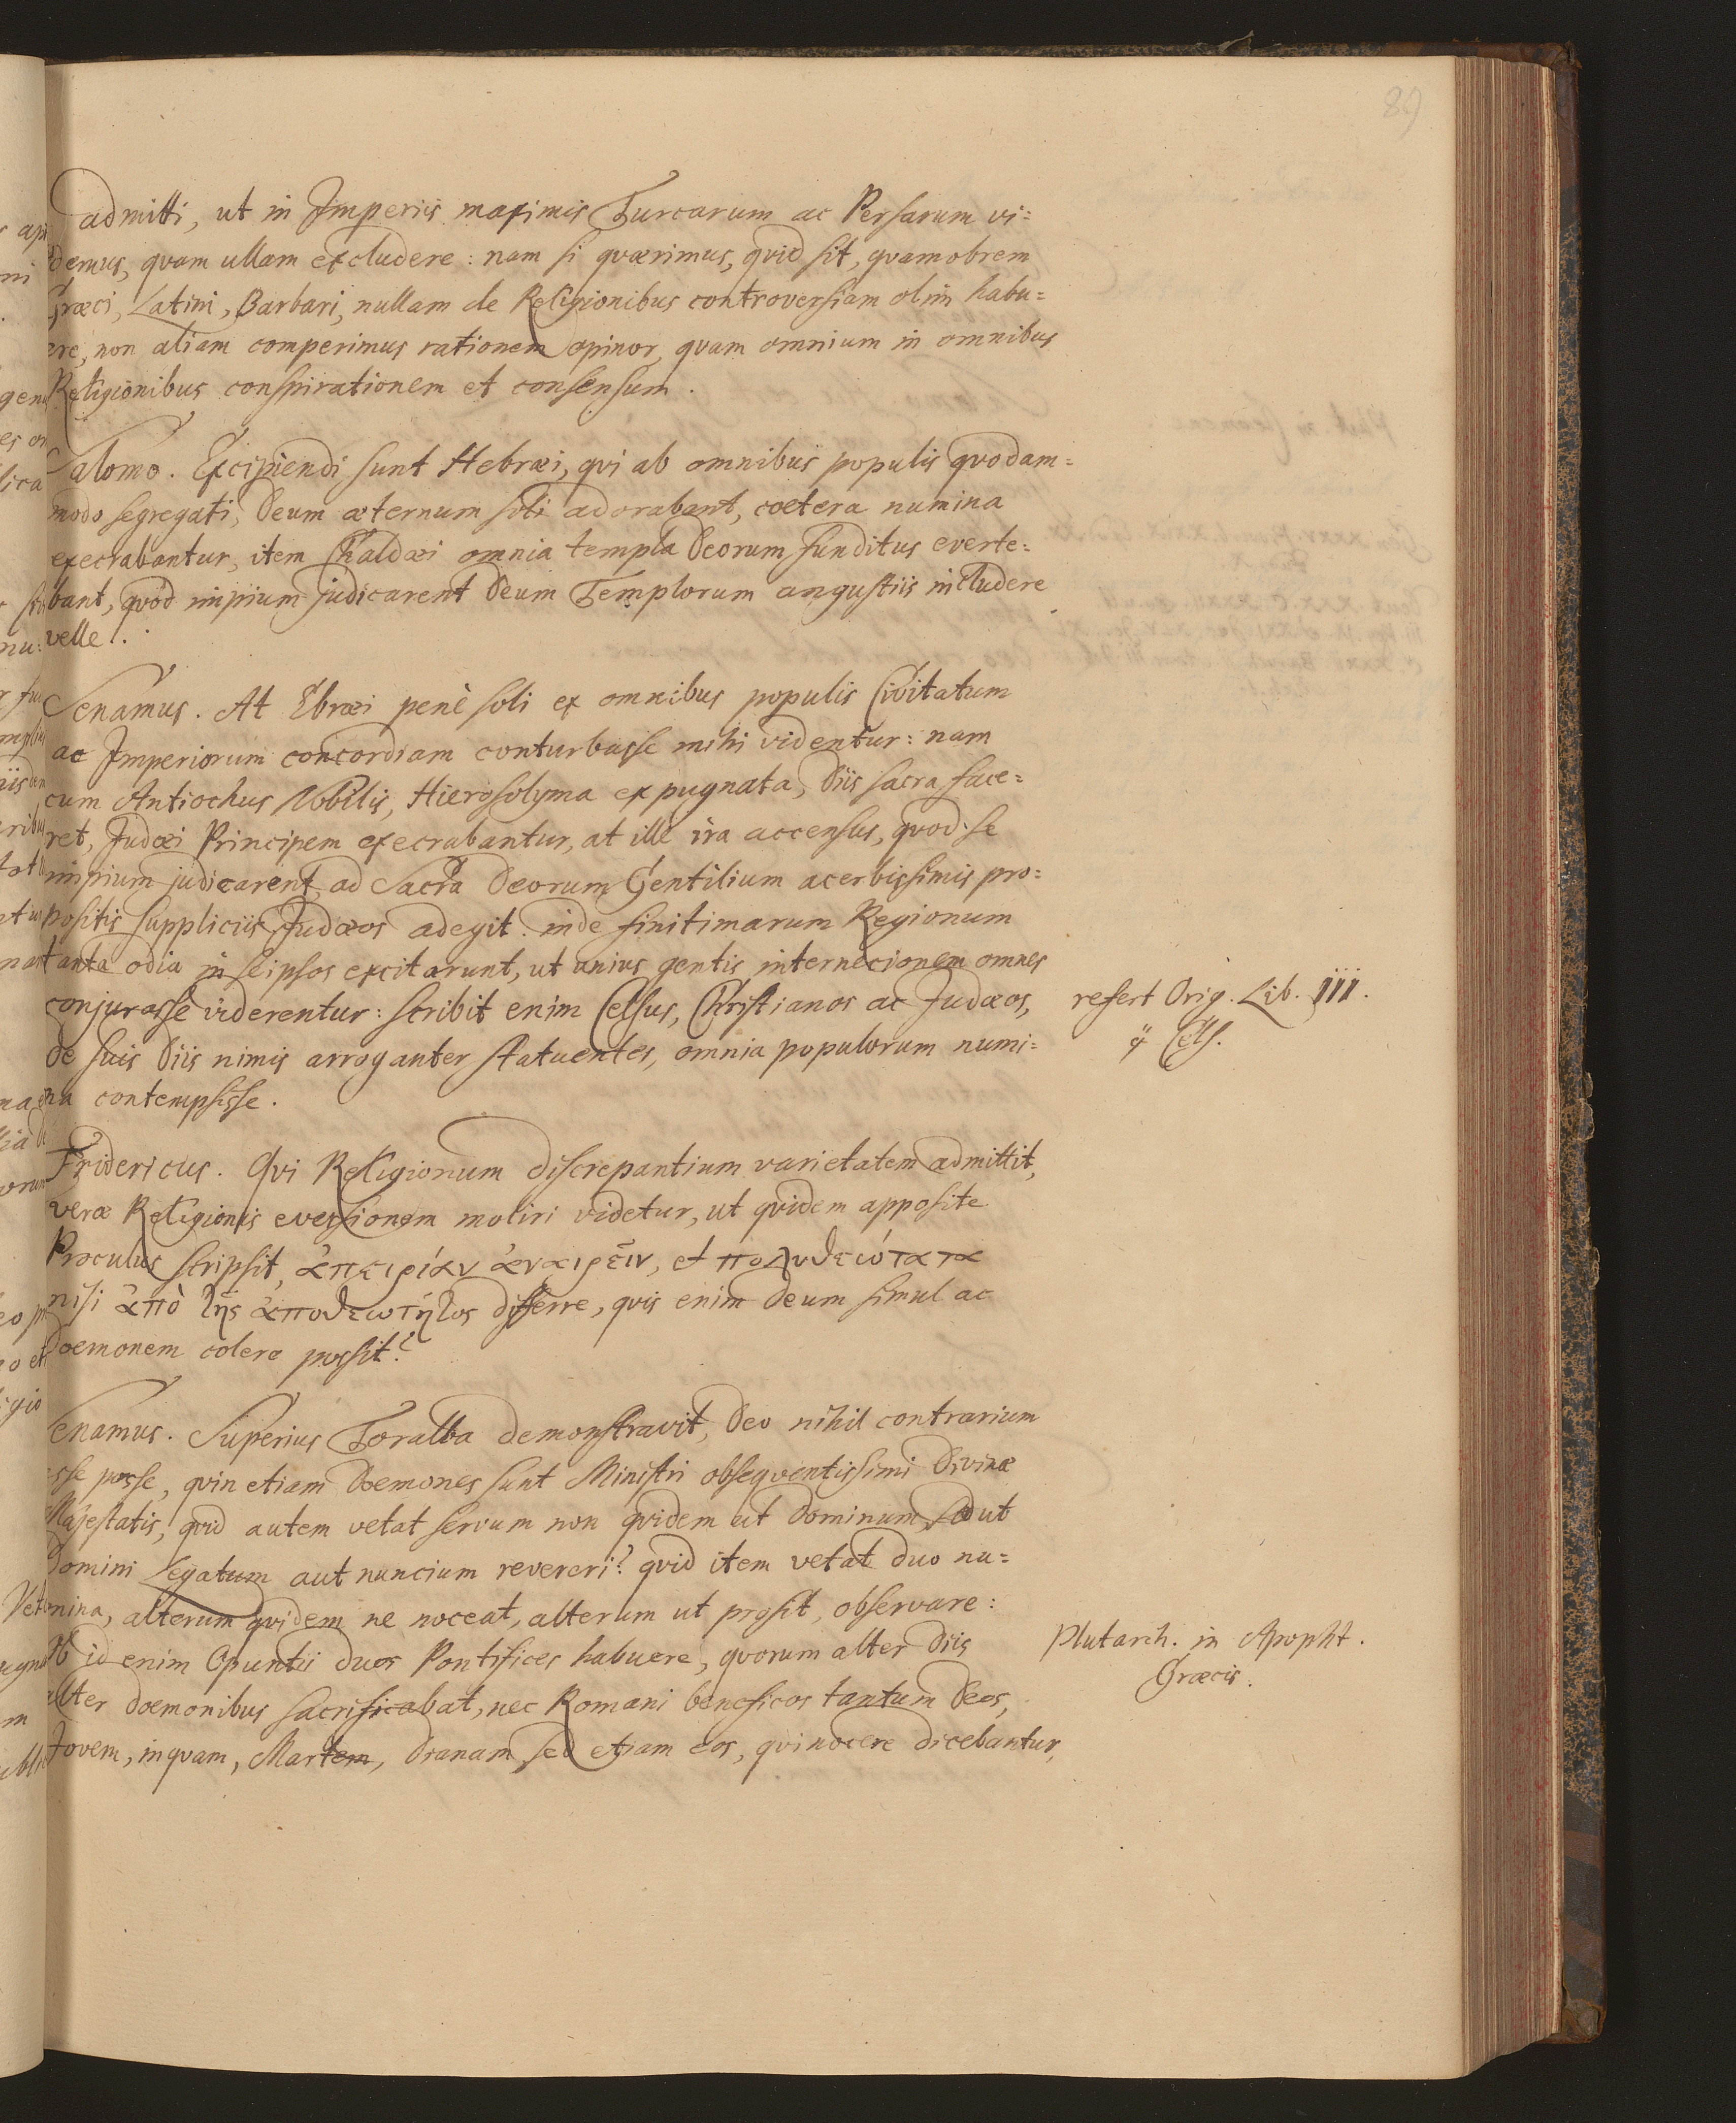 89
admitti, ut in Imperiis maximis Turcarum ac Persarum vi=
demus, quam ullam excludere: nam si quærimus, quid sit, quamobrem
Græci, Latini, Barbari, nullam de Religionibus controversiam olim habu=
ere, non aliam comperimus rationem opinor, quam omnium in omnibus
Religionibus conspirationem et consensum.
Salomo. Excipiendi sunt Hebræi, qui ab omnibus populis quodam=
modo segregati, Deum æternum soli adorabant, coetera numina
execrabantur, item Chaldæi omnia templa Deorum funditus everte=
bant, quod impium judicarent Deum Templorum angustiis includere
velle.
Senamus. At Ebræi penè soli ex omnibus populis Civitatum
ac Imperiorum concordiam conturbasse mihi videntur: nam
cum Antiochus Nobilis, Hierosolyma expugnata, Diis sacra face=
ret, Judæi Principem execrabantur, at ille ira accensus, quod se
impium judicarent, ad Sacra Deorum Gentilium acerbissimis pro=
positis suppliciis Judæos adegit. inde finitimarum Regionum
tanta odia in seipsos excitarunt, ut unius gentis internecionem omnes
conjurasse viderentur: scribit enim Celsus, Christianos ac Judæos,
refert Orig. Lib. III.
de suis Diis nimis arroganter statuentes, omnia populorum numi=
Cels.
na contempsisse.
Fridericus. Qui Religionum discrepantium varietatem admittit,
veræ Religionis eversionem moliri videtur, ut quidem apposite
Proculus scripsit, ἀπειρίαν ἀναιρεῖν, et πολυθεώτατα
nisi ἀπὸ τῆς ἀποθεωτήτος differre, quis enim Deum simul ac
Doemonem colere possit?
Senamus. Superius Toralba demonstravit, Deo nihil contrarium
esse posse, quin etiam Doemones sunt Ministri obsequentissimi Divinæ
Majestatis, quid autem vetat servum non quidem ut Dominum, sed ut
Domini Legatum aut nuncium revereri? quid item vetat duo nu=
mina, alterum quidem ne noceat, alterum ut prosit, observare:
Ob id enim Opuntii duos Pontifices habuere, quorum alter Diis
Plutarch. in Apopht.
Græcis.
alter doemonibus sacrificabat, nec Romani beneficos tantum Deos,
Jovem, inquam, Martem, Dianam, sed etiam eos, qui nocere dicebantur,